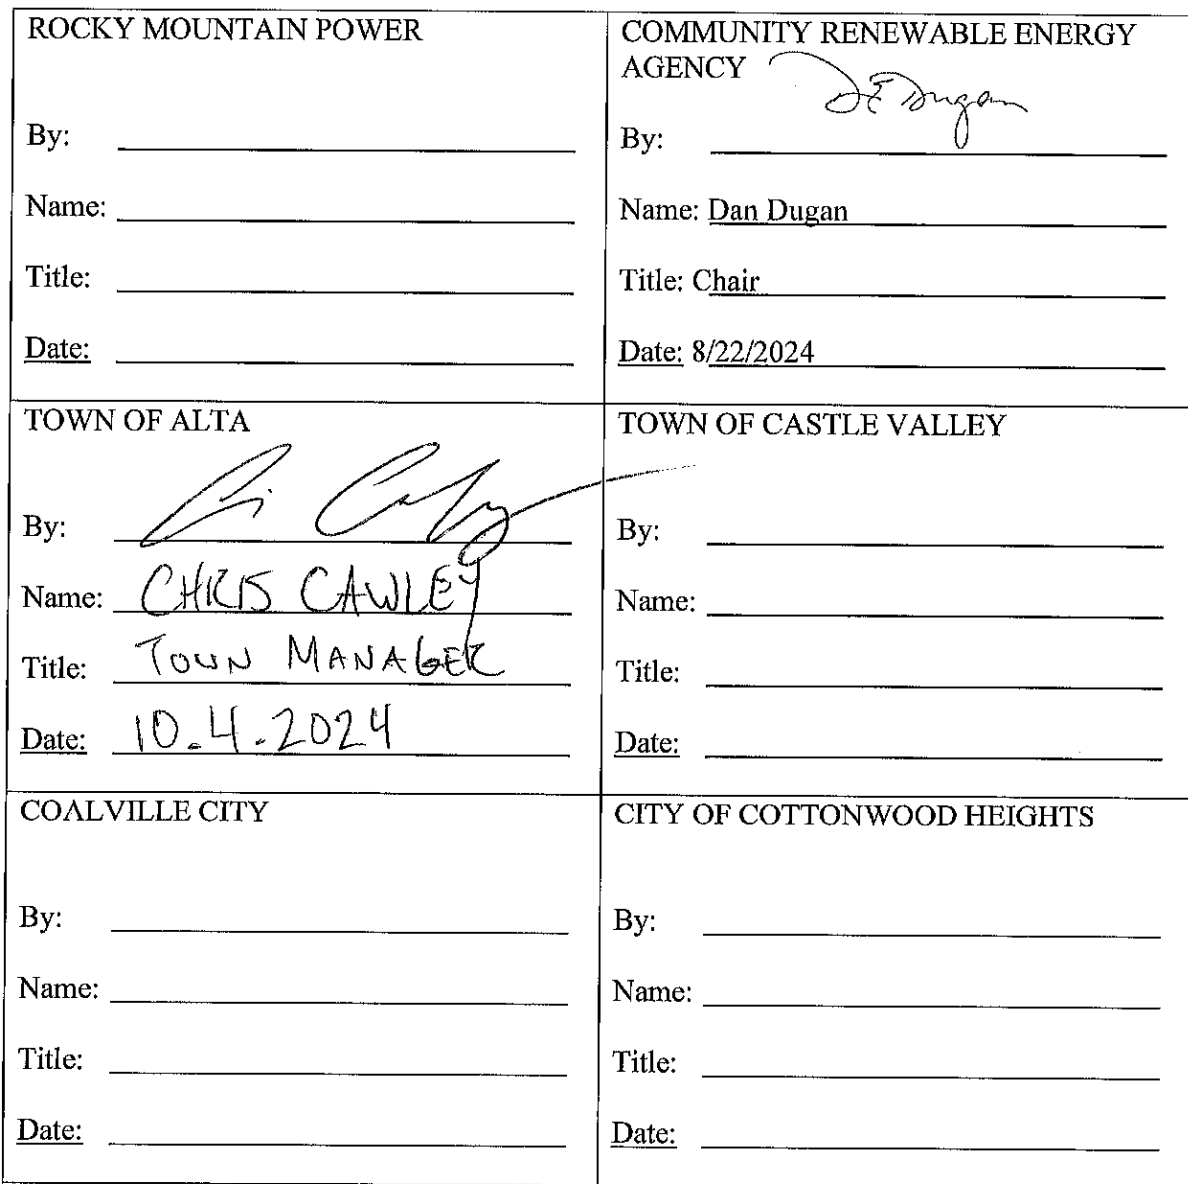 ROCKY MOUNTAIN POWER
By:
Name:
Title:
Date:
COMMUNITY RENEWABLE ENERGY
AGENCY
By: DE Dugan
Name: Dan Dugan
Title: Chair
Date: 8/22/2024
TOWN OF ALTA
By:
Name: CHRIS CAWLEY
Title: TOWN MANAGER
Date: 10.4.2024
TOWN OF CASTLE VALLEY
By:
Name:
Title:
Date:
COALVILLE CITY
By:
Name:
Title:
Date:
CITY OF COTTONWOOD HEIGHTS
By:
Name:
Title:
Date: